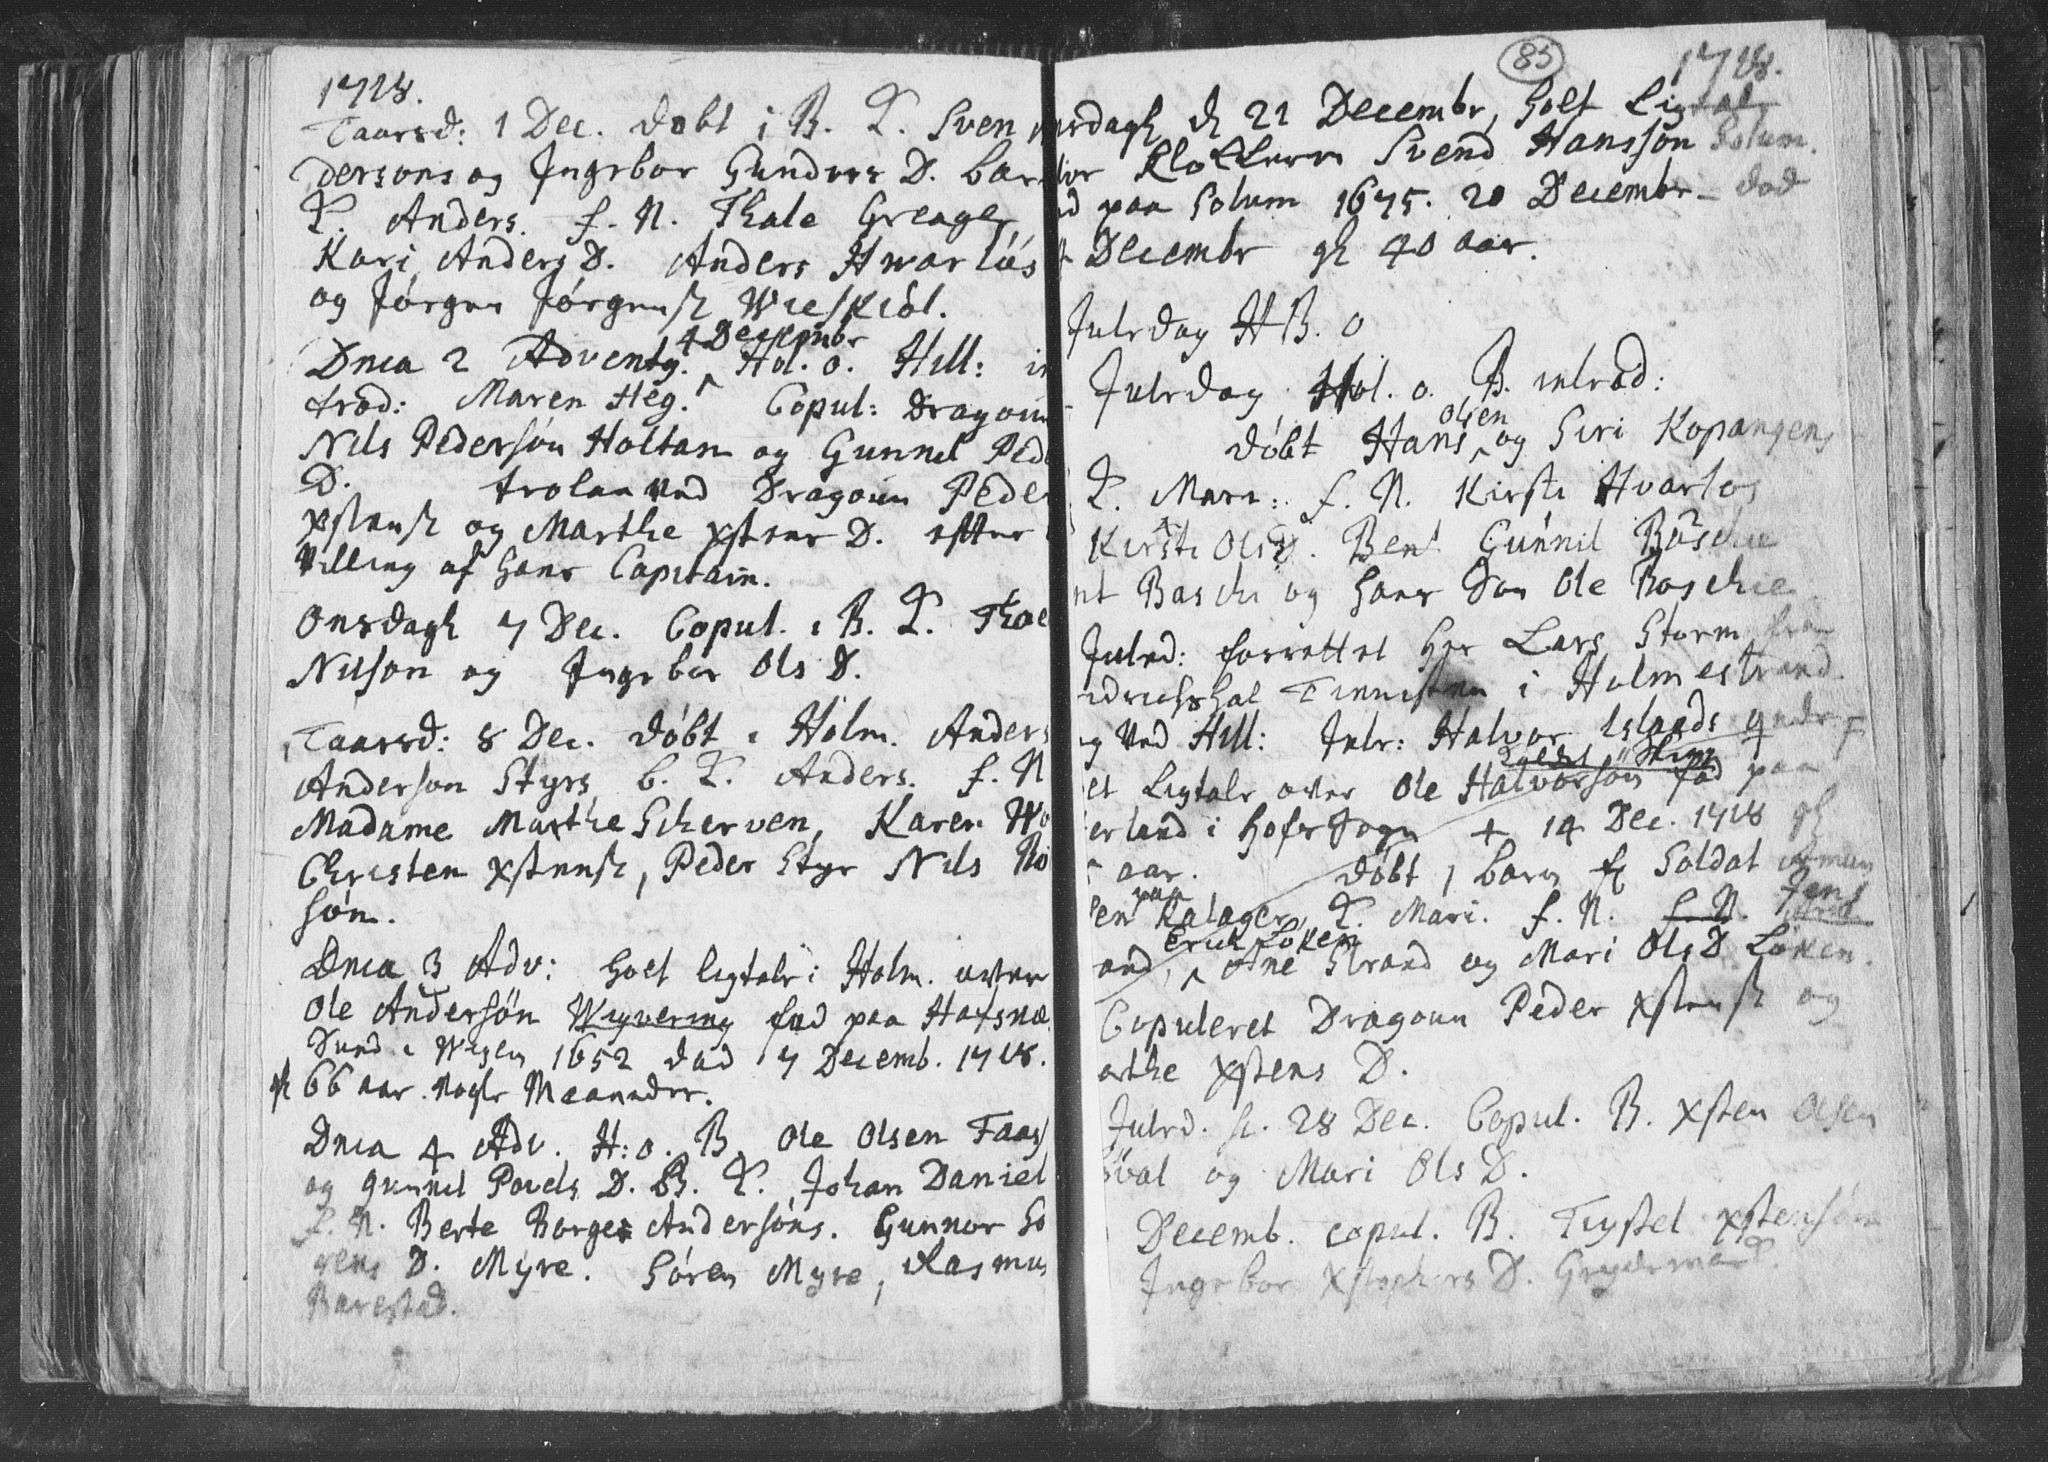 1718.
Taarsd: 1 Dec. døbt i B. K. Sven
dersons og Ingebor Gunders D. bar
K. Anders. f. N. Thale Greager,
Kari Anders D. Anders Hwarlós
og Jórgen Jórgens Wieskiól.
4 Decembr
Dnca 2 Adventg. Hol. o. Hill: in
trod: Maren Heg. Copul: Dragoun
Nils Pedersón Holtan og Gunnil Ped
D. trolaaved Dragoun Peder
Xstens og Marthe Xstens D. efter
Villing af hans Capitain.
Onsdagh 7 Dec. Copul. i B. K. Thoe
Nilson og Ingebor Ols D.
Taarsd: 8 Dec. døbt i Holm. Anders
Anderson Styrs b. K. Anders. f. N
Madame Marthe Scherven, Karen Wo
Christen Xstens, Peder Styr Nils
són.
Dnca 3 Adv: holt ligtale i Holm. over
Ole Andersón Wigvering fød paa Hafsnæ
Sund i Wigen 1652 død 7 Decemb. 1718.
gl 66 aar nogle Maaneder.
Dnca 4 Adv. H: o. B. Ole Olsen Faas
og Gunnil Povels D. B. K. Johan Daniel
f. N. Berte Borge Andersóns. Gunnor Só
rens D. Myre. Sóren Myre, Rasmus
Barestad.
85
1718.
sdagh d 21 Decembr, holt Ligtal
over Klokkern Svend Hansson Solum.
d paa Solum 1675. 20 Decembr død
Decembr gl 40 aar.
Juledag H B. o
Juledag Hol. o. B. introd:
Olsen
døbt Hans og Siri Kopangens
K. Mari: f. N. Kirsti Hvarlos
Kirsti Ols D. Bent Gunnil Båschie
nt Baschi og hans Søn Ole Baschie
Juled: forrettet Her Lars Storm fra
idrichshal Tienisten i Holmestrand.
g ved Hill: Jule: Halvor Eslands
et Ligtale over Ole Halvorsón fød paa
erland i Hofs Sogn + 14 Dec. 1718 gl
aar. døbt 1 barn f Soldat
paa
en Kalager, K. Mari. f. N. f. N. Jens
Erich Løken
and, Ane Strand og Mari Ols D Løken.
Copuleret Dragoun Peder Xstens og
arthe Xstens D.
Juled. sc. 28 Dec. Copul. B. Xsten Olsen
val og Mari Ols D.
Decemb. copul. B. Tystel Xstensón
Ingebor Xstophers D.